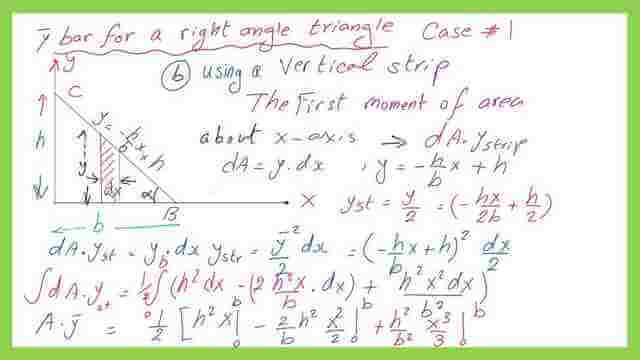 ȳ bar for a right angle triangle Case #1
y
ⓑ using a vertical strip
C
The First moment of area
y = -h/b x + h
about x-axis ⇒ dA·ystrip
h
y
dA = y·dx , y = -h/b x + h
dx
α
x
yst = y/2 = (-hx/2b + h/2)
B
b
dA·yst = y·dx ystr = y²/2 dx = (-h/b x + h)² dx/2
∫dA·yst = 1/2 ∫₀ᵇ (h²dx - (2h²x/b · dx) + h²x²dx/b²)
A·ȳ = 1/2 [h²x|₀ᵇ - 2/b h² x²/2 |₀ᵇ + h²/b² x³/3 |₀ᵇ